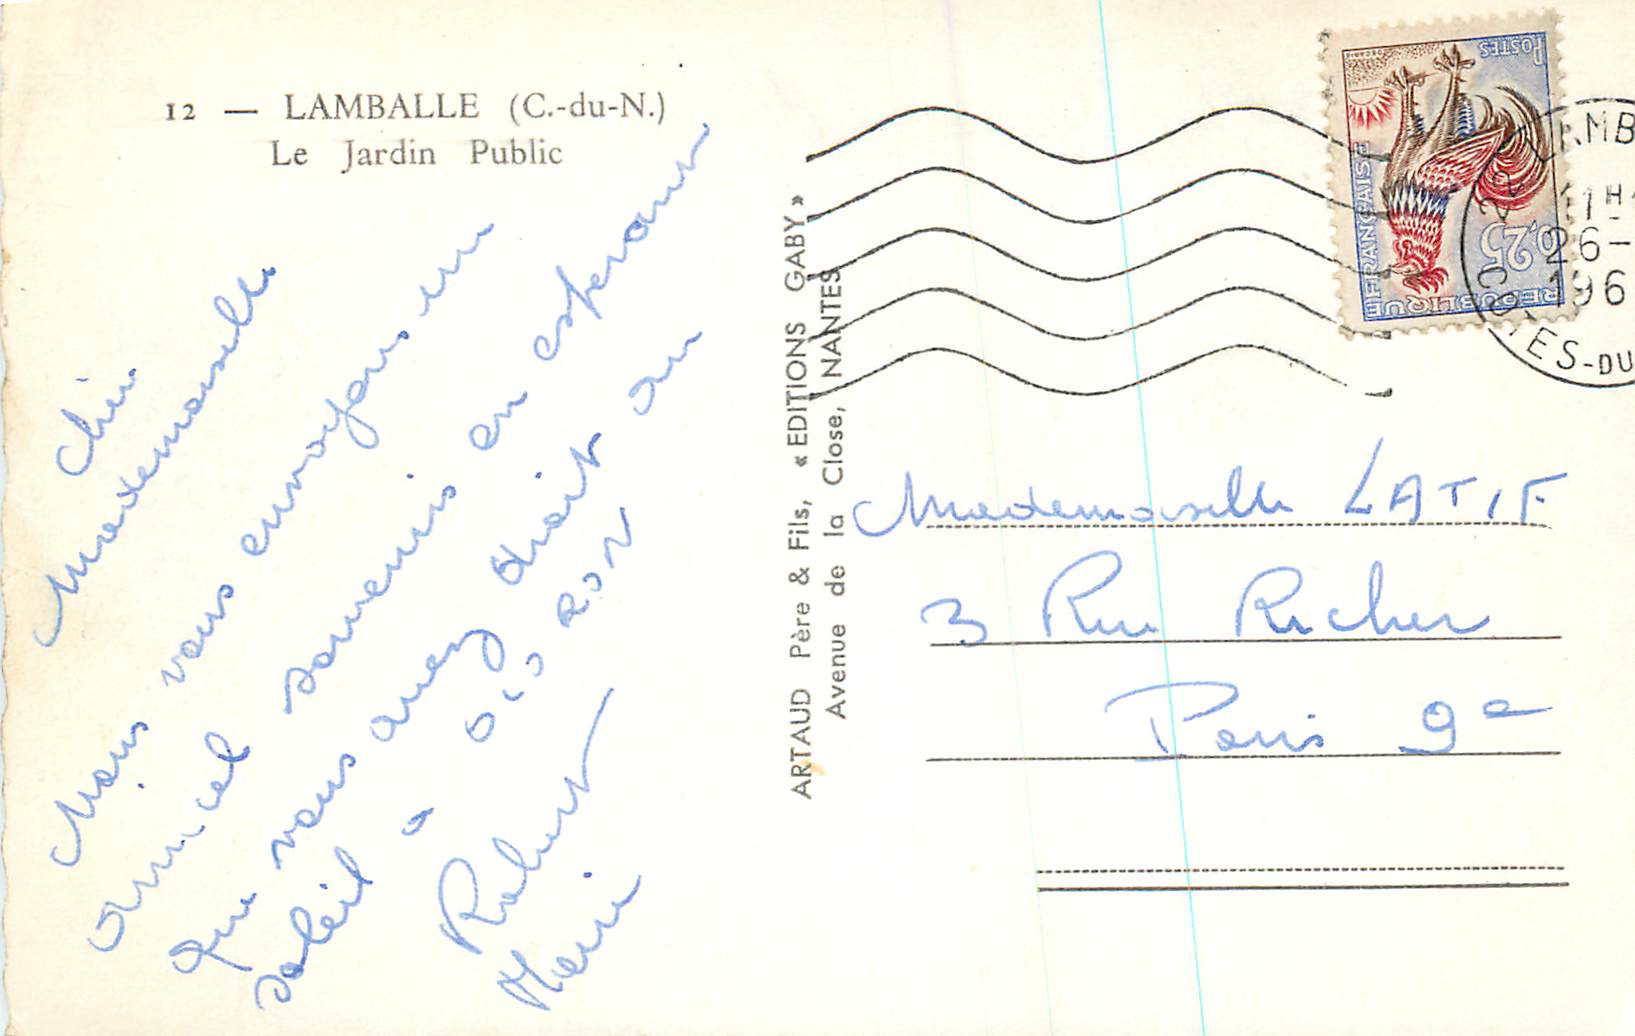 12 — LAMBALLE (C.-du-N.)
Le Jardin Public
Chère
Mademoiselle
Nous vous envoyons un
amical souvenir en espérant
que vous avez droit au
soleil à
Robert
ARTAUD Père & Fils, « EDITIONS GABY »
Avenue de la Close, NANTES
POSTES
0,25
REPUBLIQUE FRANÇAISE
LAMB
26-
196
COTES-DU
Mademoiselle LATIF
3 Rue Richer
Paris 9e